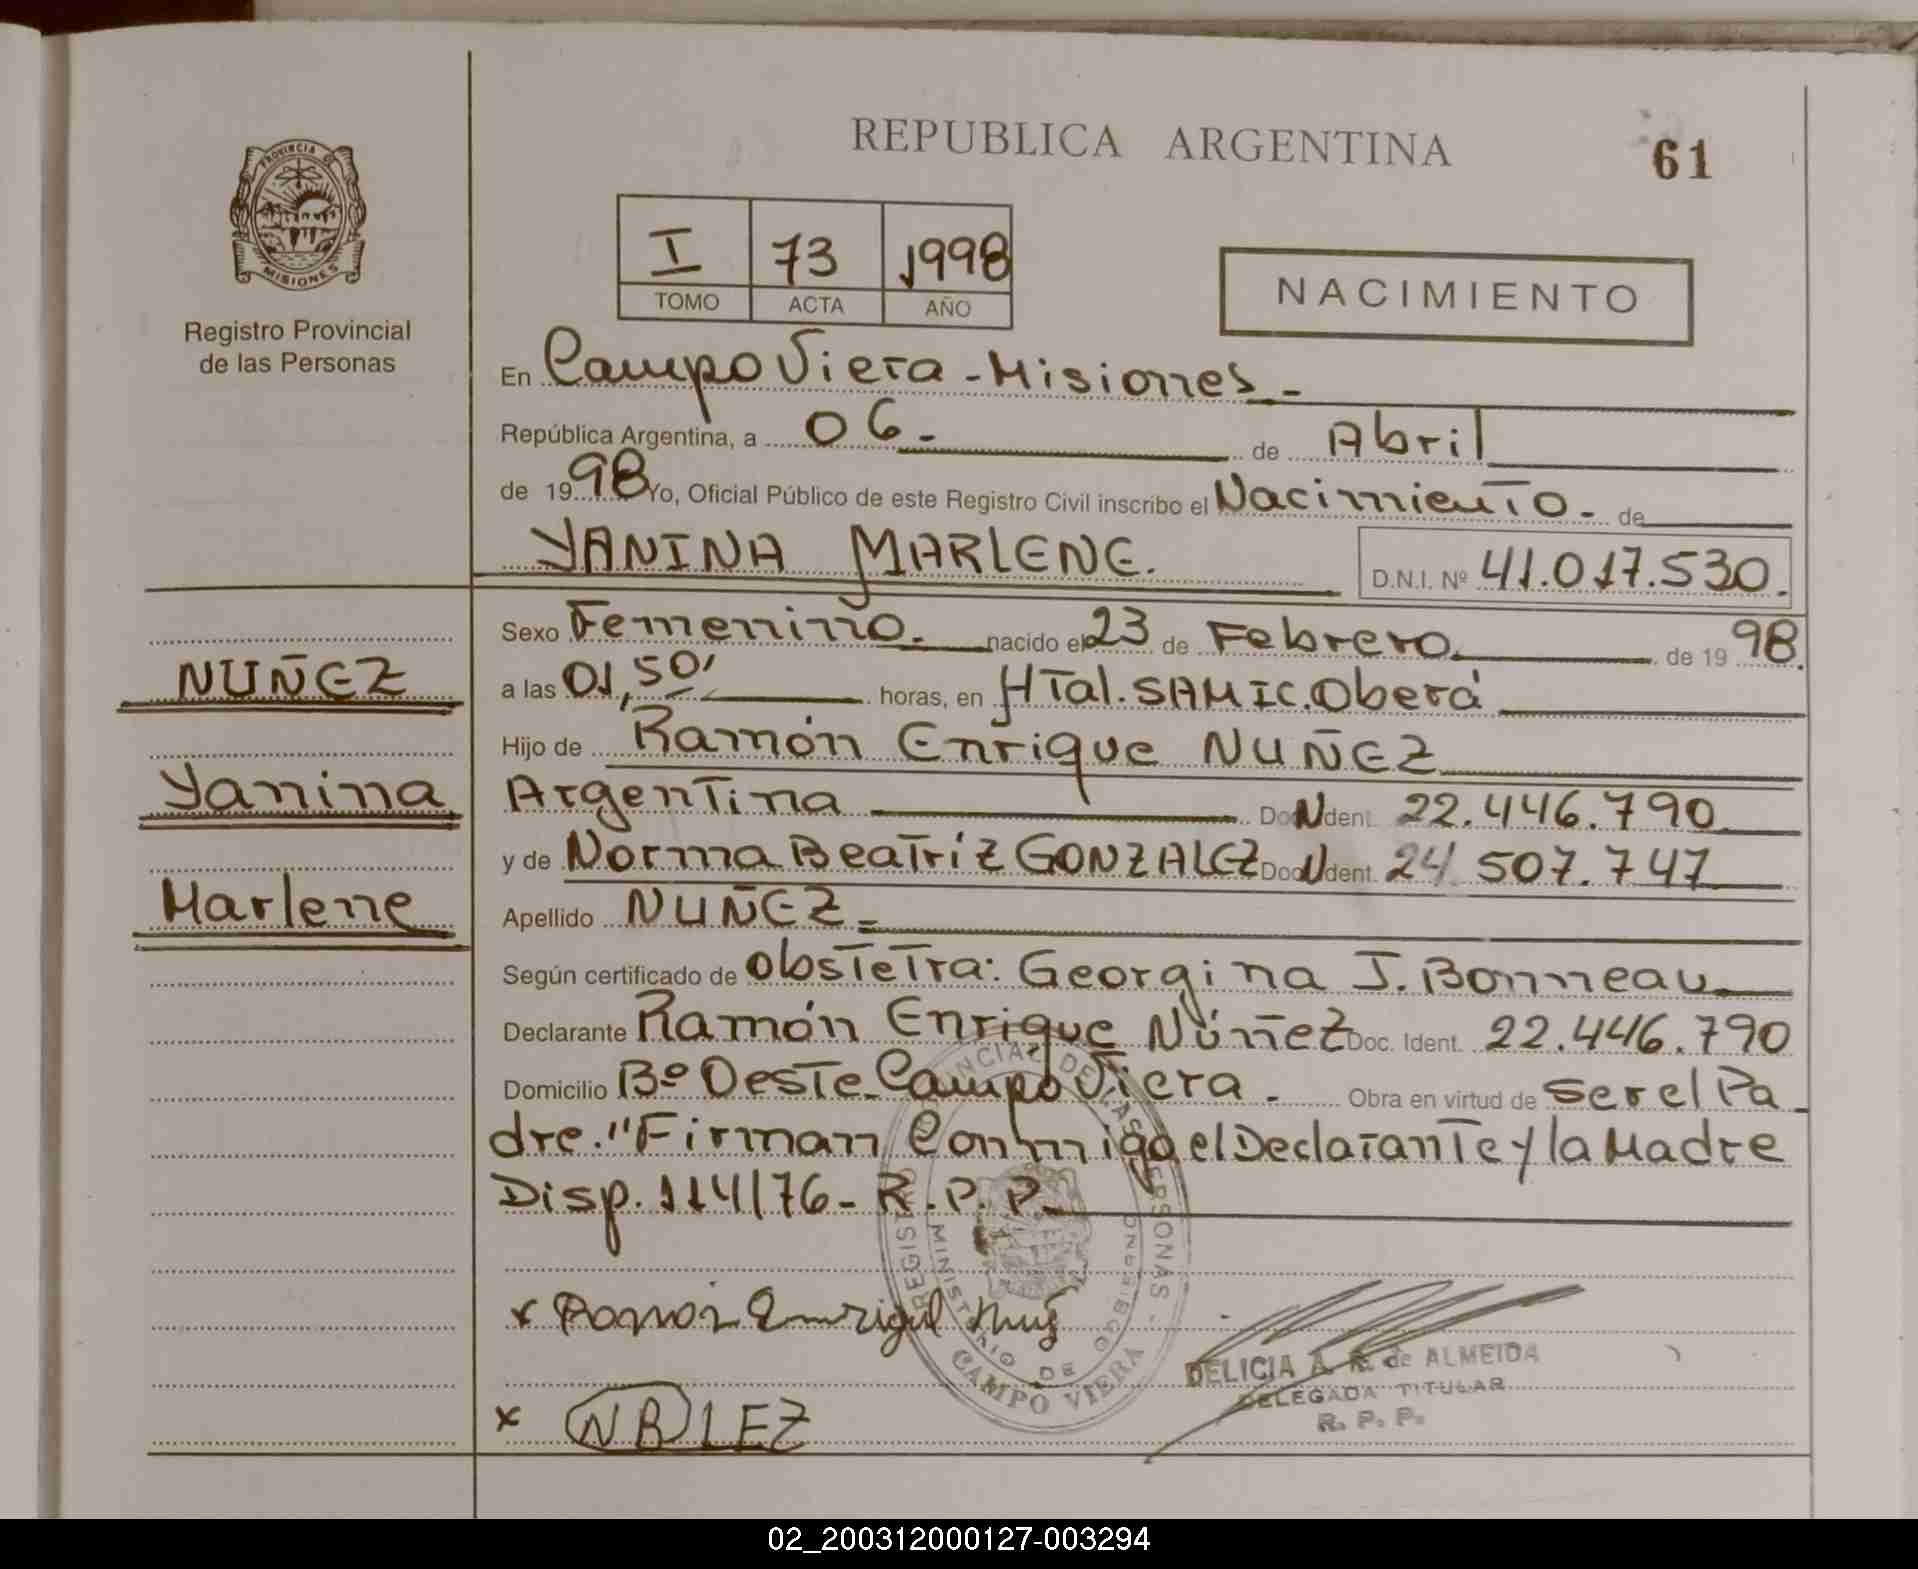 REPUBLICA ARGENTINA
61
PROVINCIA DE
MISIONES
Registro Provincial
de las Personas
I 73 1998
TOMO ACTA AÑO
NACIMIENTO
En Campo Viera - Misiones -
República Argentina, a 06 - de Abril
de 19 98 Yo, Oficial Público de este Registro Civil inscribo el Nacimiento - de
YANINA MARLENE. D.N.I. Nº 41.017.530.
Sexo Femenino. nacido el 23 de Febrero de 19 98.
NUÑEZ
a las 01,50' horas, en HTal. SAMIC. Oberá
Hijo de Ramón Enrique NUÑEZ
Yanina
Argentina Doc. Ident. 22.446.790
y de Norma Beatríz GONZALEZ Doc. Ident. 24.507.747
Marlene
Apellido NUÑEZ -
Según certificado de obstetra: Georgina J. Bonneau
Declarante Ramón Enrique Núñez Doc. Ident. 22.446.790
Domicilio Bº Oeste - Campo Viera - Obra en virtud de ser el Pa
dre. "Firman Conmigo el Declarante y la Madre
Disp. 114/76 - R.P.P.
REGISTRO PROVINCIAL DE LAS PERSONAS -
MINISTERIO DE GOBIERNO
CAMPO VIERA
x Ramon Enrique
DELICIA A. R. de ALMEIDA
DELEGADA TITULAR
R. P. P.
x NB LEZ
02_200312000127-003294